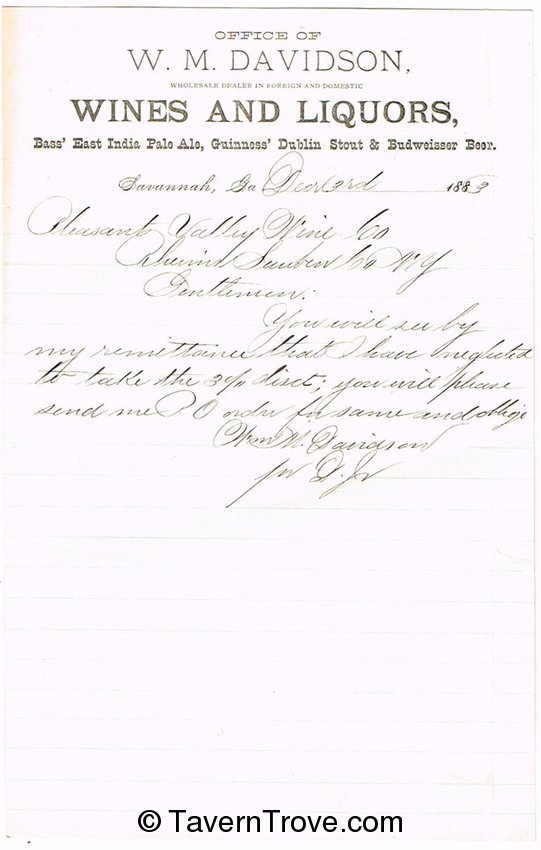 OFFICE OF
W. M. DAVIDSON,
WHOLESALE DEALER IN FOREIGN AND DOMESTIC
WINES AND LIQUORS,
Bass' East India Pale Ale, Guinness' Dublin Stout & Budweisser Beer.
Savannah, Ga Decr 3rd 1883
Pleasant Valley Wine Co
Rheims Steuben Co NY
Gentlemen:
You will see by
my remittance that I have neglected
to take the 3% disct; you will please
send me P O order for same and oblige
Wm M. Davidson
pr D. Jr
© TavernTrove.com